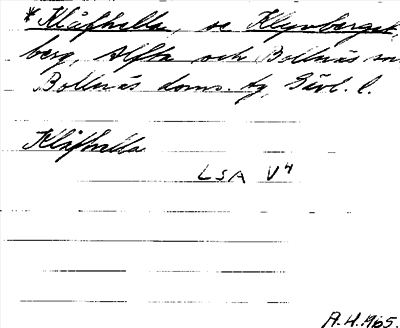 * Klåfhalla, se Klyvberget,
berg, Alfta och Bollnäs snr
Bollnäs doms. tg, Gävl. l.
Klåfhalla
LSA V4
A.H. 1965.